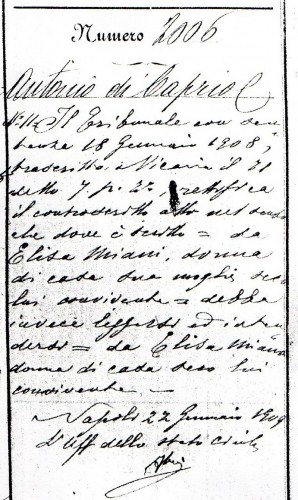 Numero 2006
Antonio di Caprio
Il Tribunale con sen
tenza 18 Gennaio 1908,
trascritto a Vicaria il 21
detto 7 p. 2ª rettifica
il controscritto atto nel senso
che dove è scritto = da
Elisa Miani, donna
di casa sua moglie seco
lui convivente = debba
invece leggersi ed inten
dersi = da Elisa Miani
donna di casa seco lui
convivente —
Napoli 22 Gennaio 1909
L'Uff dello stato civile